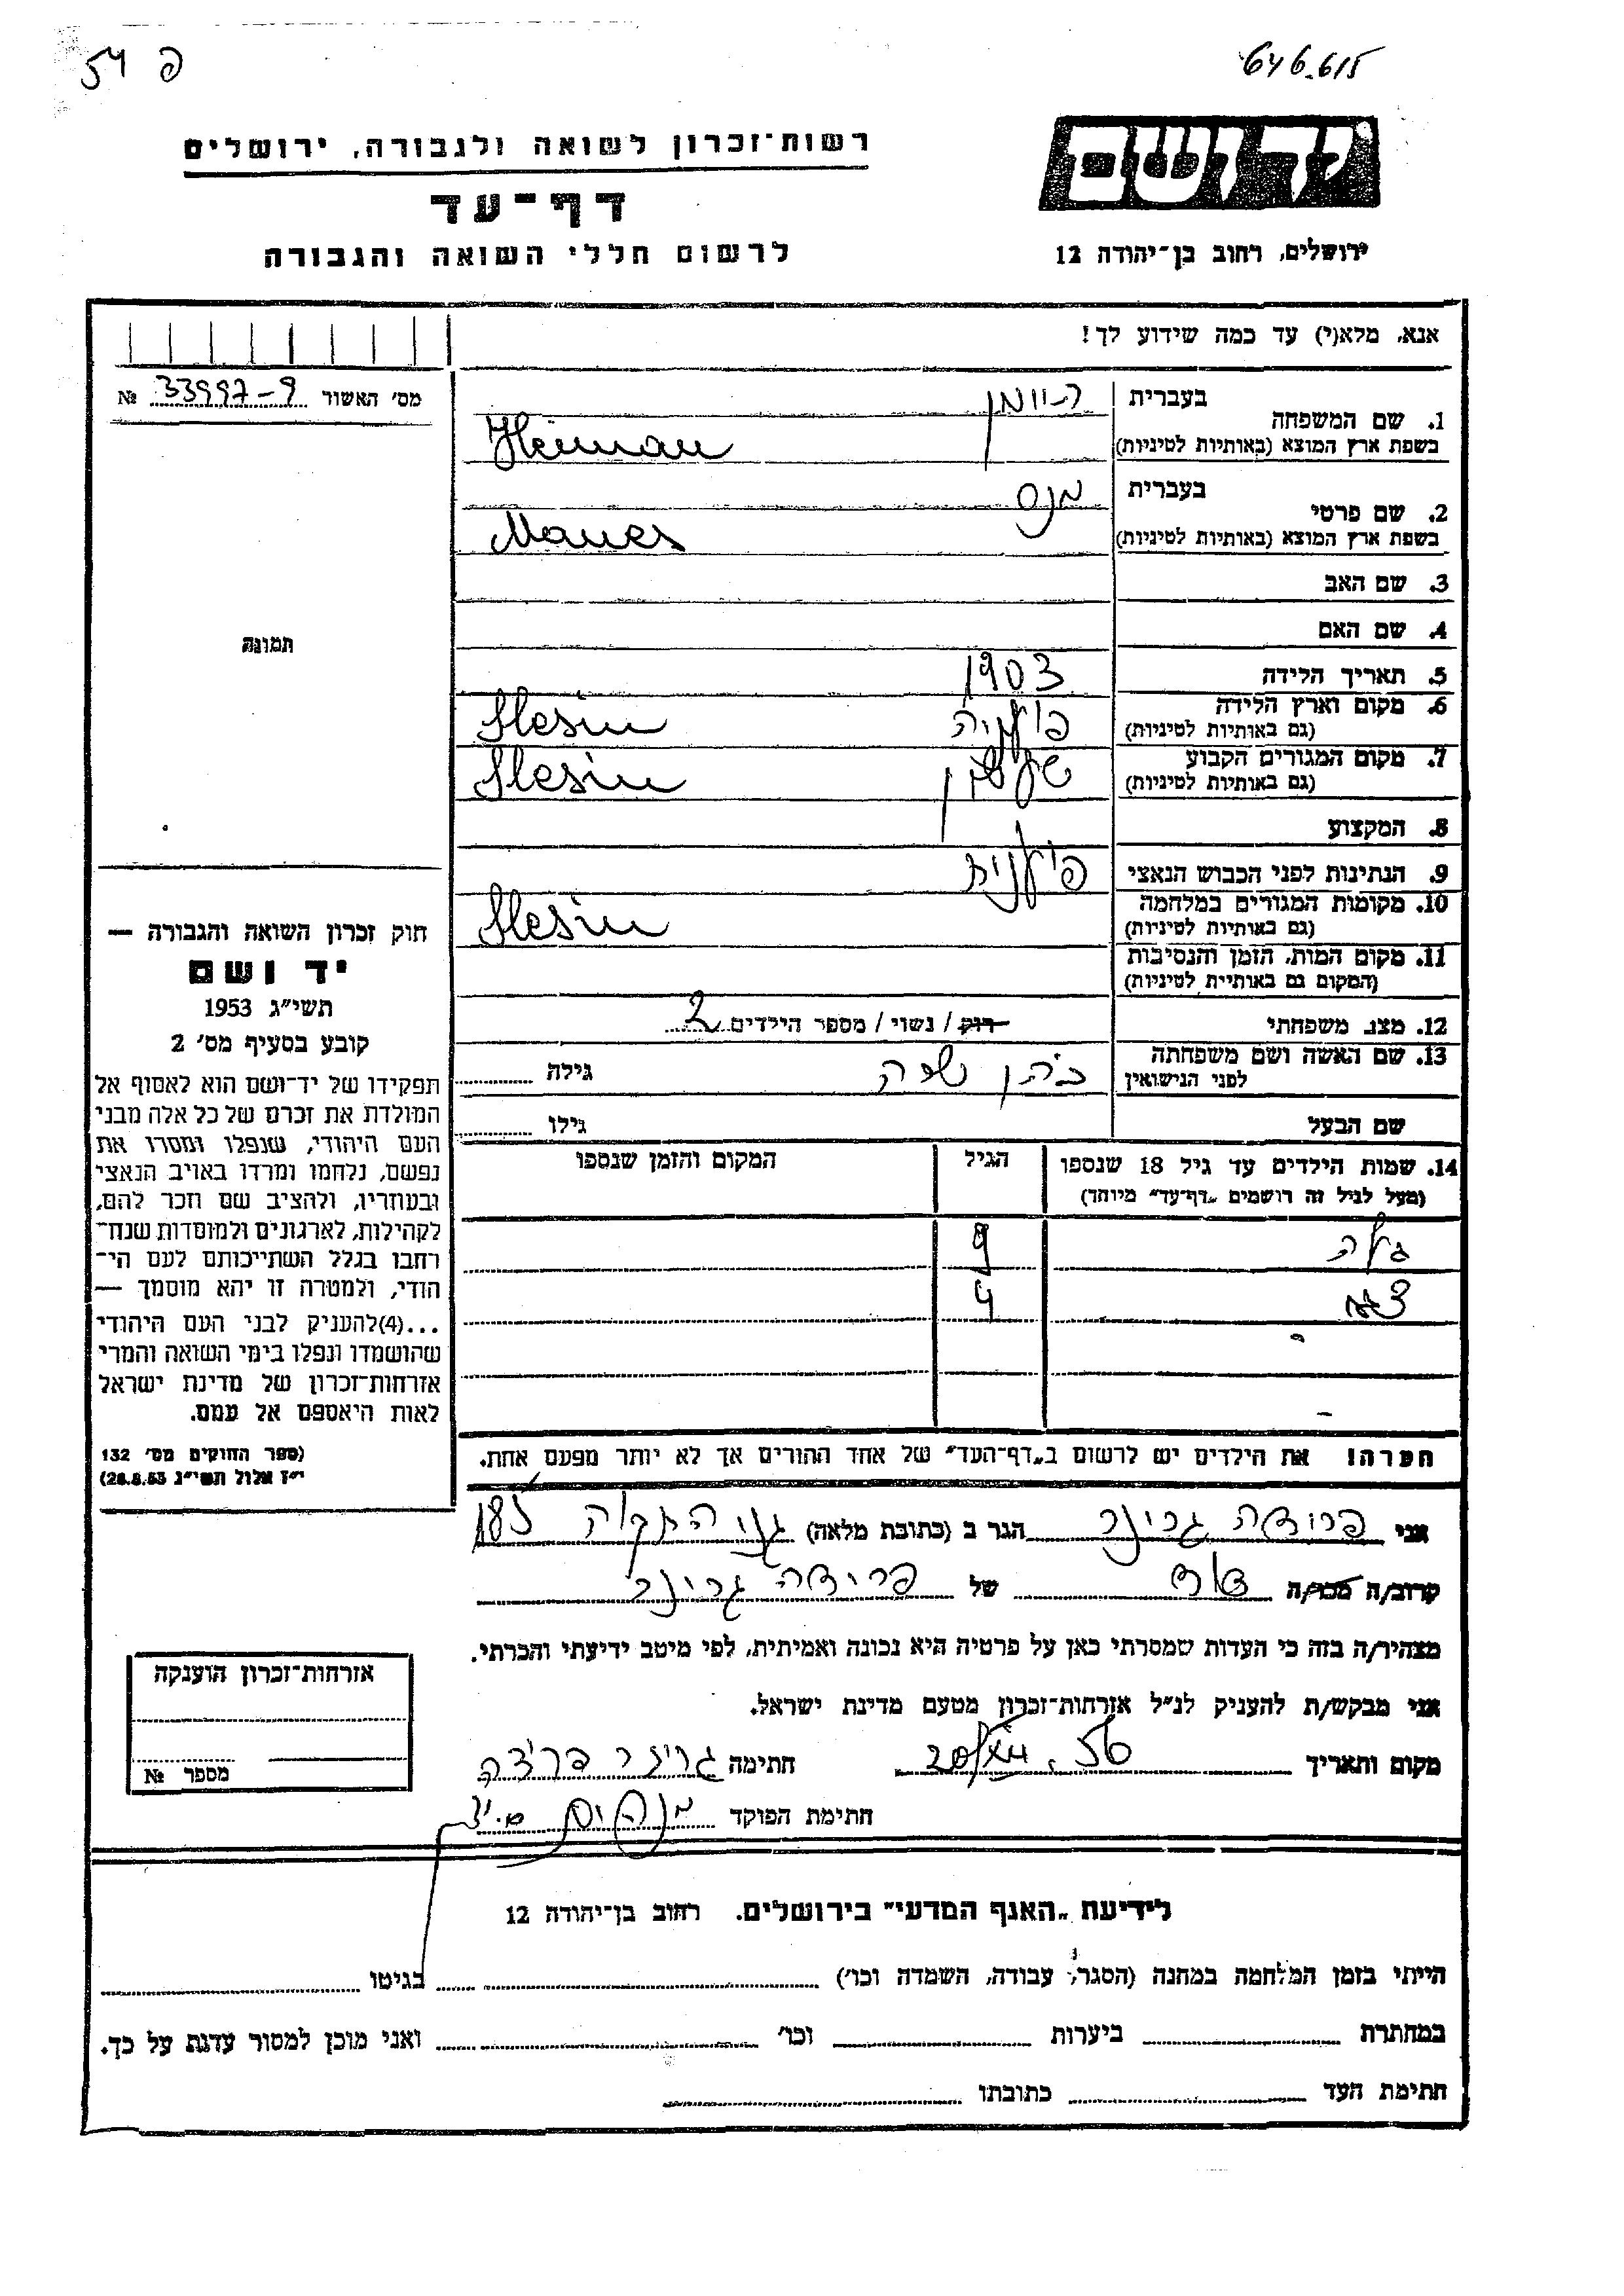 54 פ
646.615
רשות־זכרון לשואה ולגבורה, ירושלים
יד ושם
דף־עד
לרשום חללי השואה והגבורה
ירושלים, רחוב בן־יהודה 12
אנא, מלא(י) עד כמה שידוע לך!
מס׳ האשור 33997-9 №
1. שם המשפחה
בעברית היימן
בשפת ארץ המוצא (באותיות לטיניות) Heiman
2. שם פרטי
בעברית מנס
בשפת ארץ המוצא (באותיות לטיניות) Manes
3. שם האב
4. שם האם
תמונה
5. תאריך הלידה 1903
6. מקום וארץ הלידה פולניה Slesin
(גם באותיות לטיניות)
7. מקום המגורים הקבוע Slesin
(גם באותיות לטיניות)
8. המקצוע
9. הנתינות לפני הכבוש הנאצי פולנית
10. מקומות המגורים במלחמה Slesin
(גם באותיות לטיניות)
11. מקום המות, הזמן והנסיבות
(המקום גם באותיית לטיניות)
12. מצב משפחתי רוק / נשוי / מספר הילדים 2
13. שם האשה ושם משפחתה כהן שרה גילה
לפני הנישואין
שם הבעל גילו
14. שמות הילדים עד גיל 18 שנספו הגיל המקום והזמן שנספו
(מעל לגיל זה רושמים „דף־עד״ מיוחד)
גלה 9
4
הערה! את הילדים יש לרשום ב„דף־העד״ של אחד ההורים אך לא יותר מפעם אחת.
חוק זכרון השואה והגבורה —
יד ושם
תשי״ג 1953
קובע בסעיף מס׳ 2
תפקידו של יד־ושם הוא לאסוף אל
המולדת את זכרם של כל אלה מבני
העם היהודי, שנפלו ומסרו את
נפשם, נלחמו ומרדו באויב הנאצי
ובעוזריו, ולהציב שם וזכר להם,
לקהילות, לארגונים ולמוסדות שנח־
רחבו בגלל השתייכותם לעם הי־
הודי, ולמטרה זו יהא מוסמך —
...(4)להעניק לבני העם היהודי
שהושמדו ונפלו בימי השואה והמרי
אזרחות־זכרון של מדינת ישראל
לאות היאספם אל עמם.
(ספר החוקים מס׳ 132
י״ז אלול תשי״ג 28.8.53)
אני פרידה גרינר הגר ב (כתובת מלאה) התקוה 185
קרוב/ה מכר/ה דוד של פרידה גרינר
מצהיר/ה בזה כי העדות שמסרתי כאן על פרטיה היא נכונה ואמיתית, לפי מיטב ידיעתי והכרתי.
אני מבקש/ת להעניק לנ״ל אזרחות־זכרון מטעם מדינת ישראל.
מקום ותאריך 56 חתימה גרינר פרידה
חתימת הפוקד
אזרחות־זכרון הוענקה
מספר №
לידיעת „האגף המדעי״ בירושלים. רחוב בן־יהודה 12
הייתי בזמן המלחמה במחנה (הסגר, עבודה, השמדה וכו׳) בגיטו
במחתרת ביערות וכו׳ ואני מוכן למסור עדות על כך.
חתימת העד כתובתו